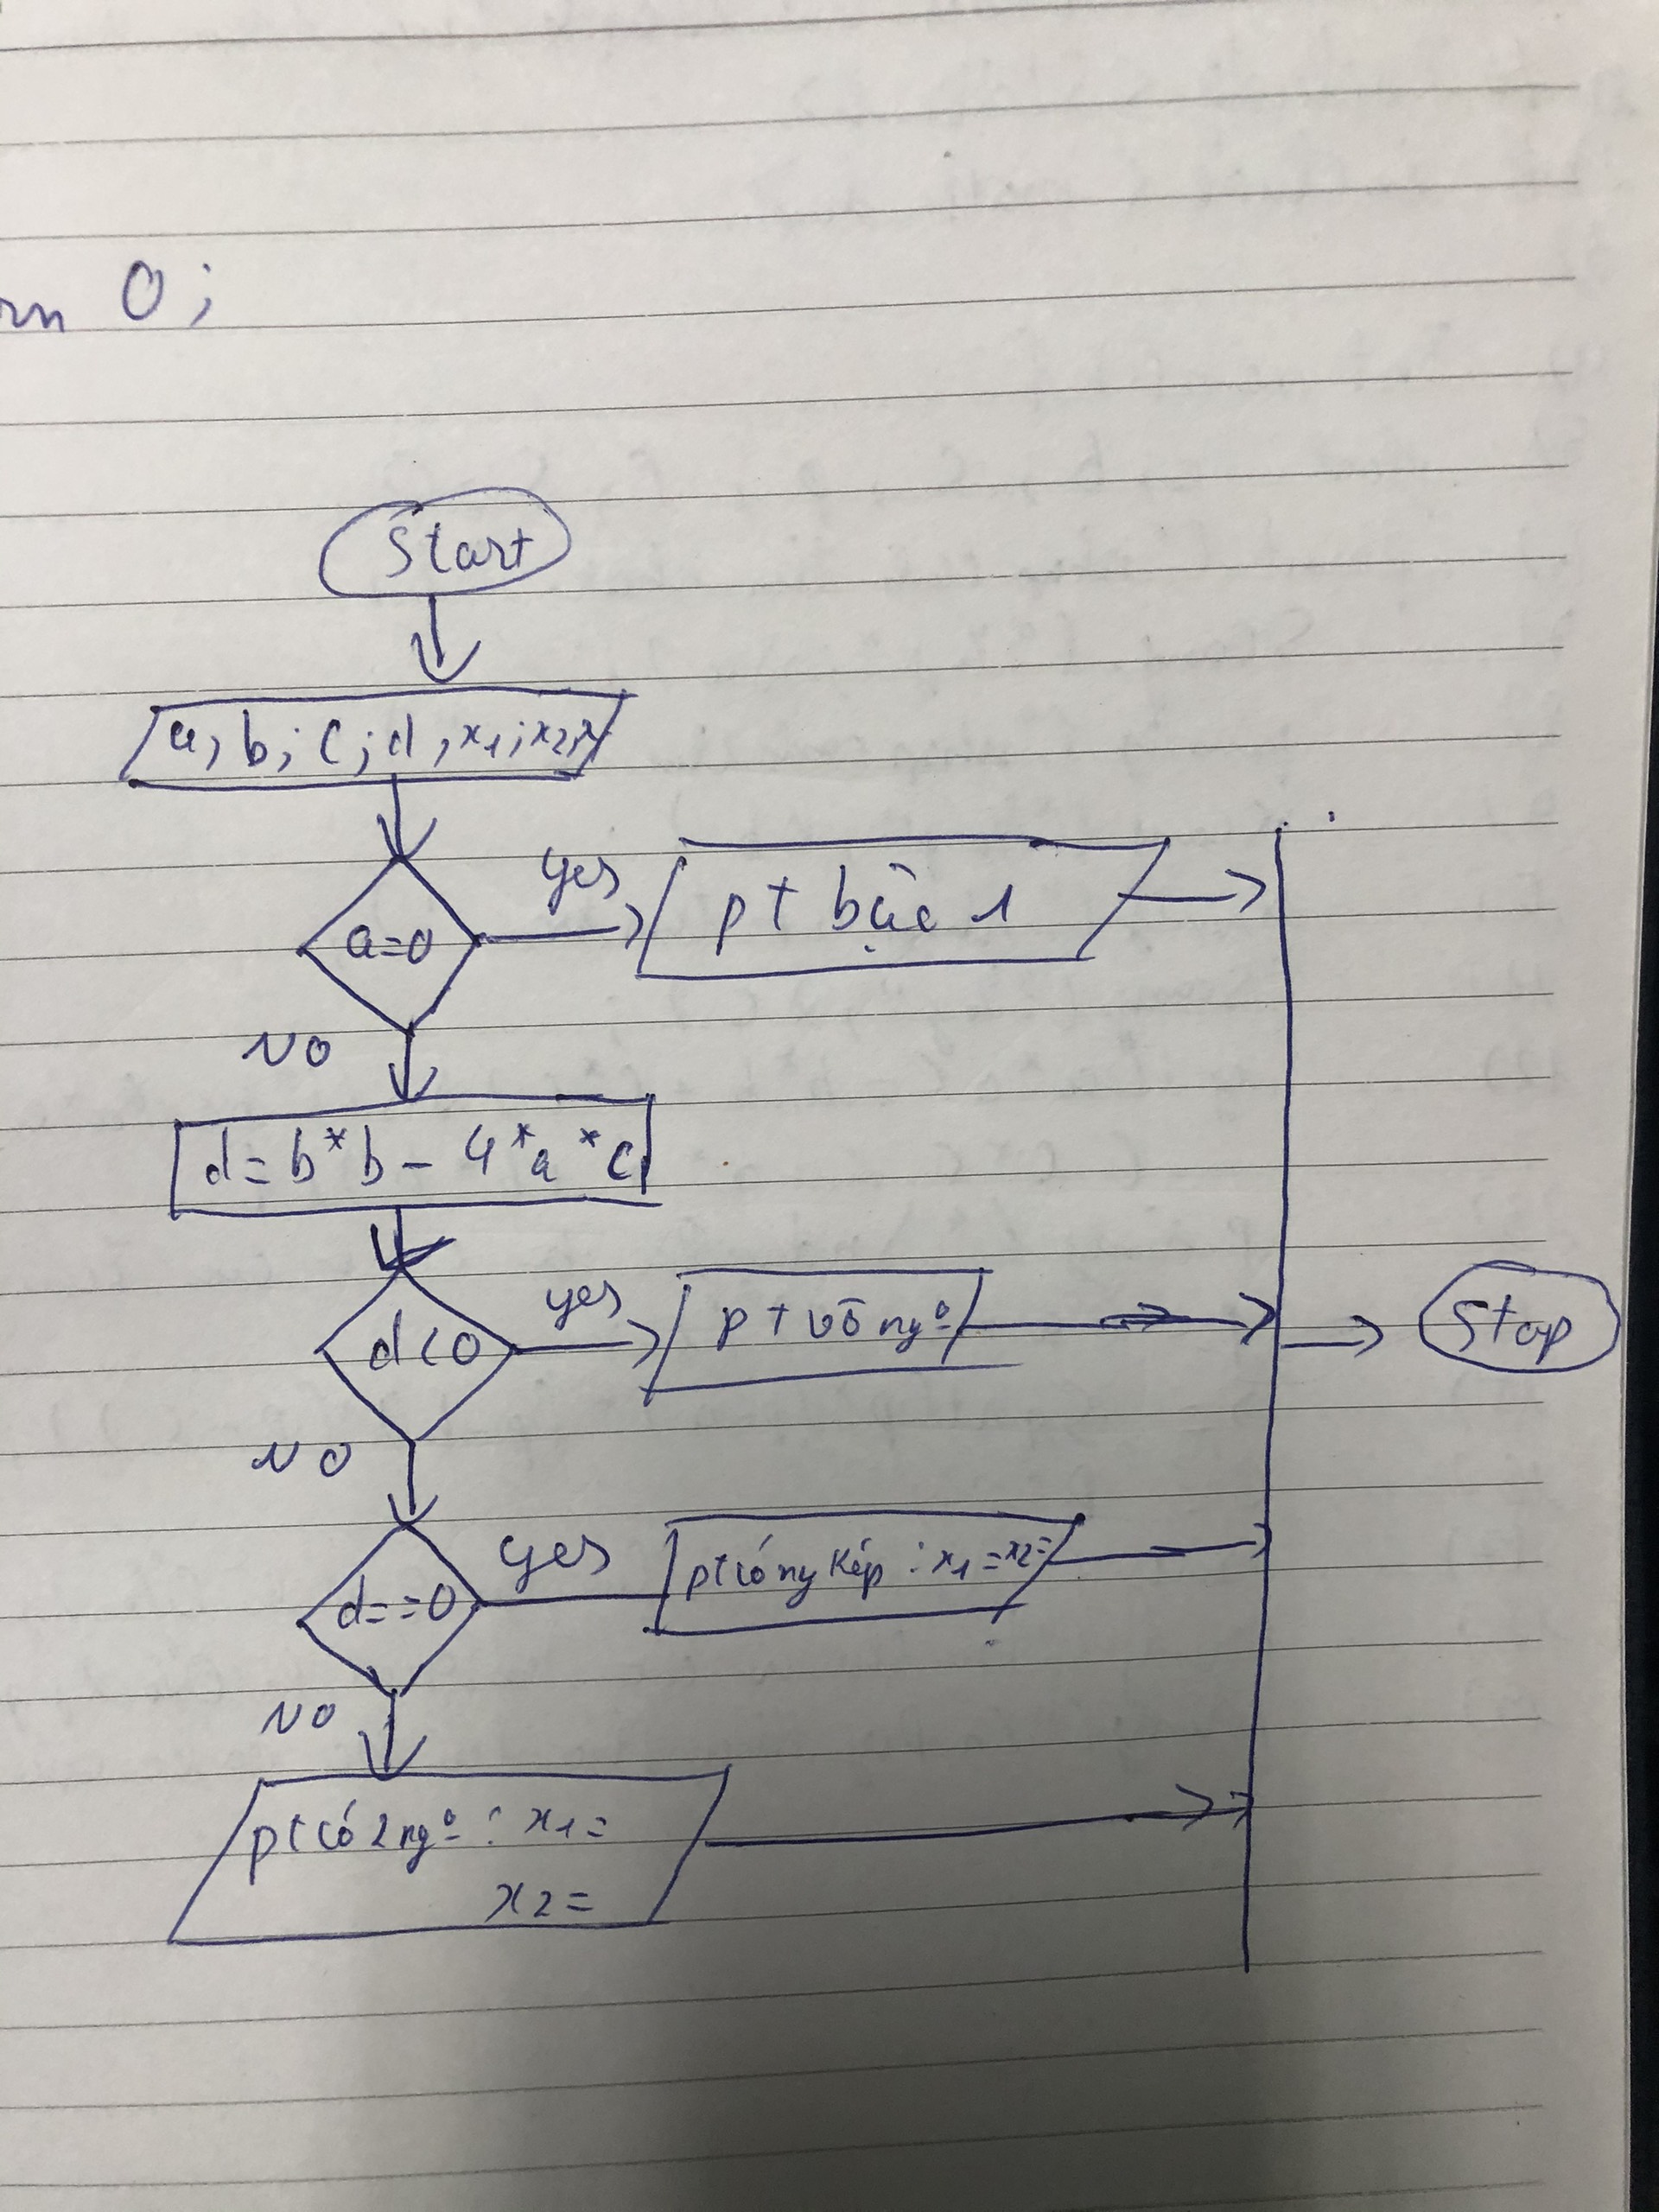 rn 0;
Start
a, b; c; d, x1; x2; x
a=0
yes
pt bậc 1
NO
d = b*b - 4*a*c
d<0
yes
pt vô ngº
Stop
NO
d==0
yes
pt có ng kép : x1 = x2 =
NO
pt có 2 ngº : x1 =
x2 =